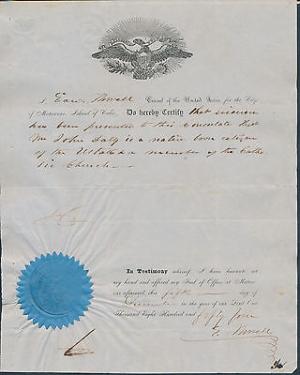 Consul of the United States, for the City
of Matanzas, Island of Cuba, Do hereby Certify that evidence
has been presented to this consulate that
Mr John is a native born citizen
of the UStates & a member of the Catho
lic Church
In Testimony whereof, I have hereunto set
my hand and affixed my Seal of Office at Matan-
zas aforesaid, this fifth day of
December in the year of our Lord One
Thousand Eight Hundred and fifty four